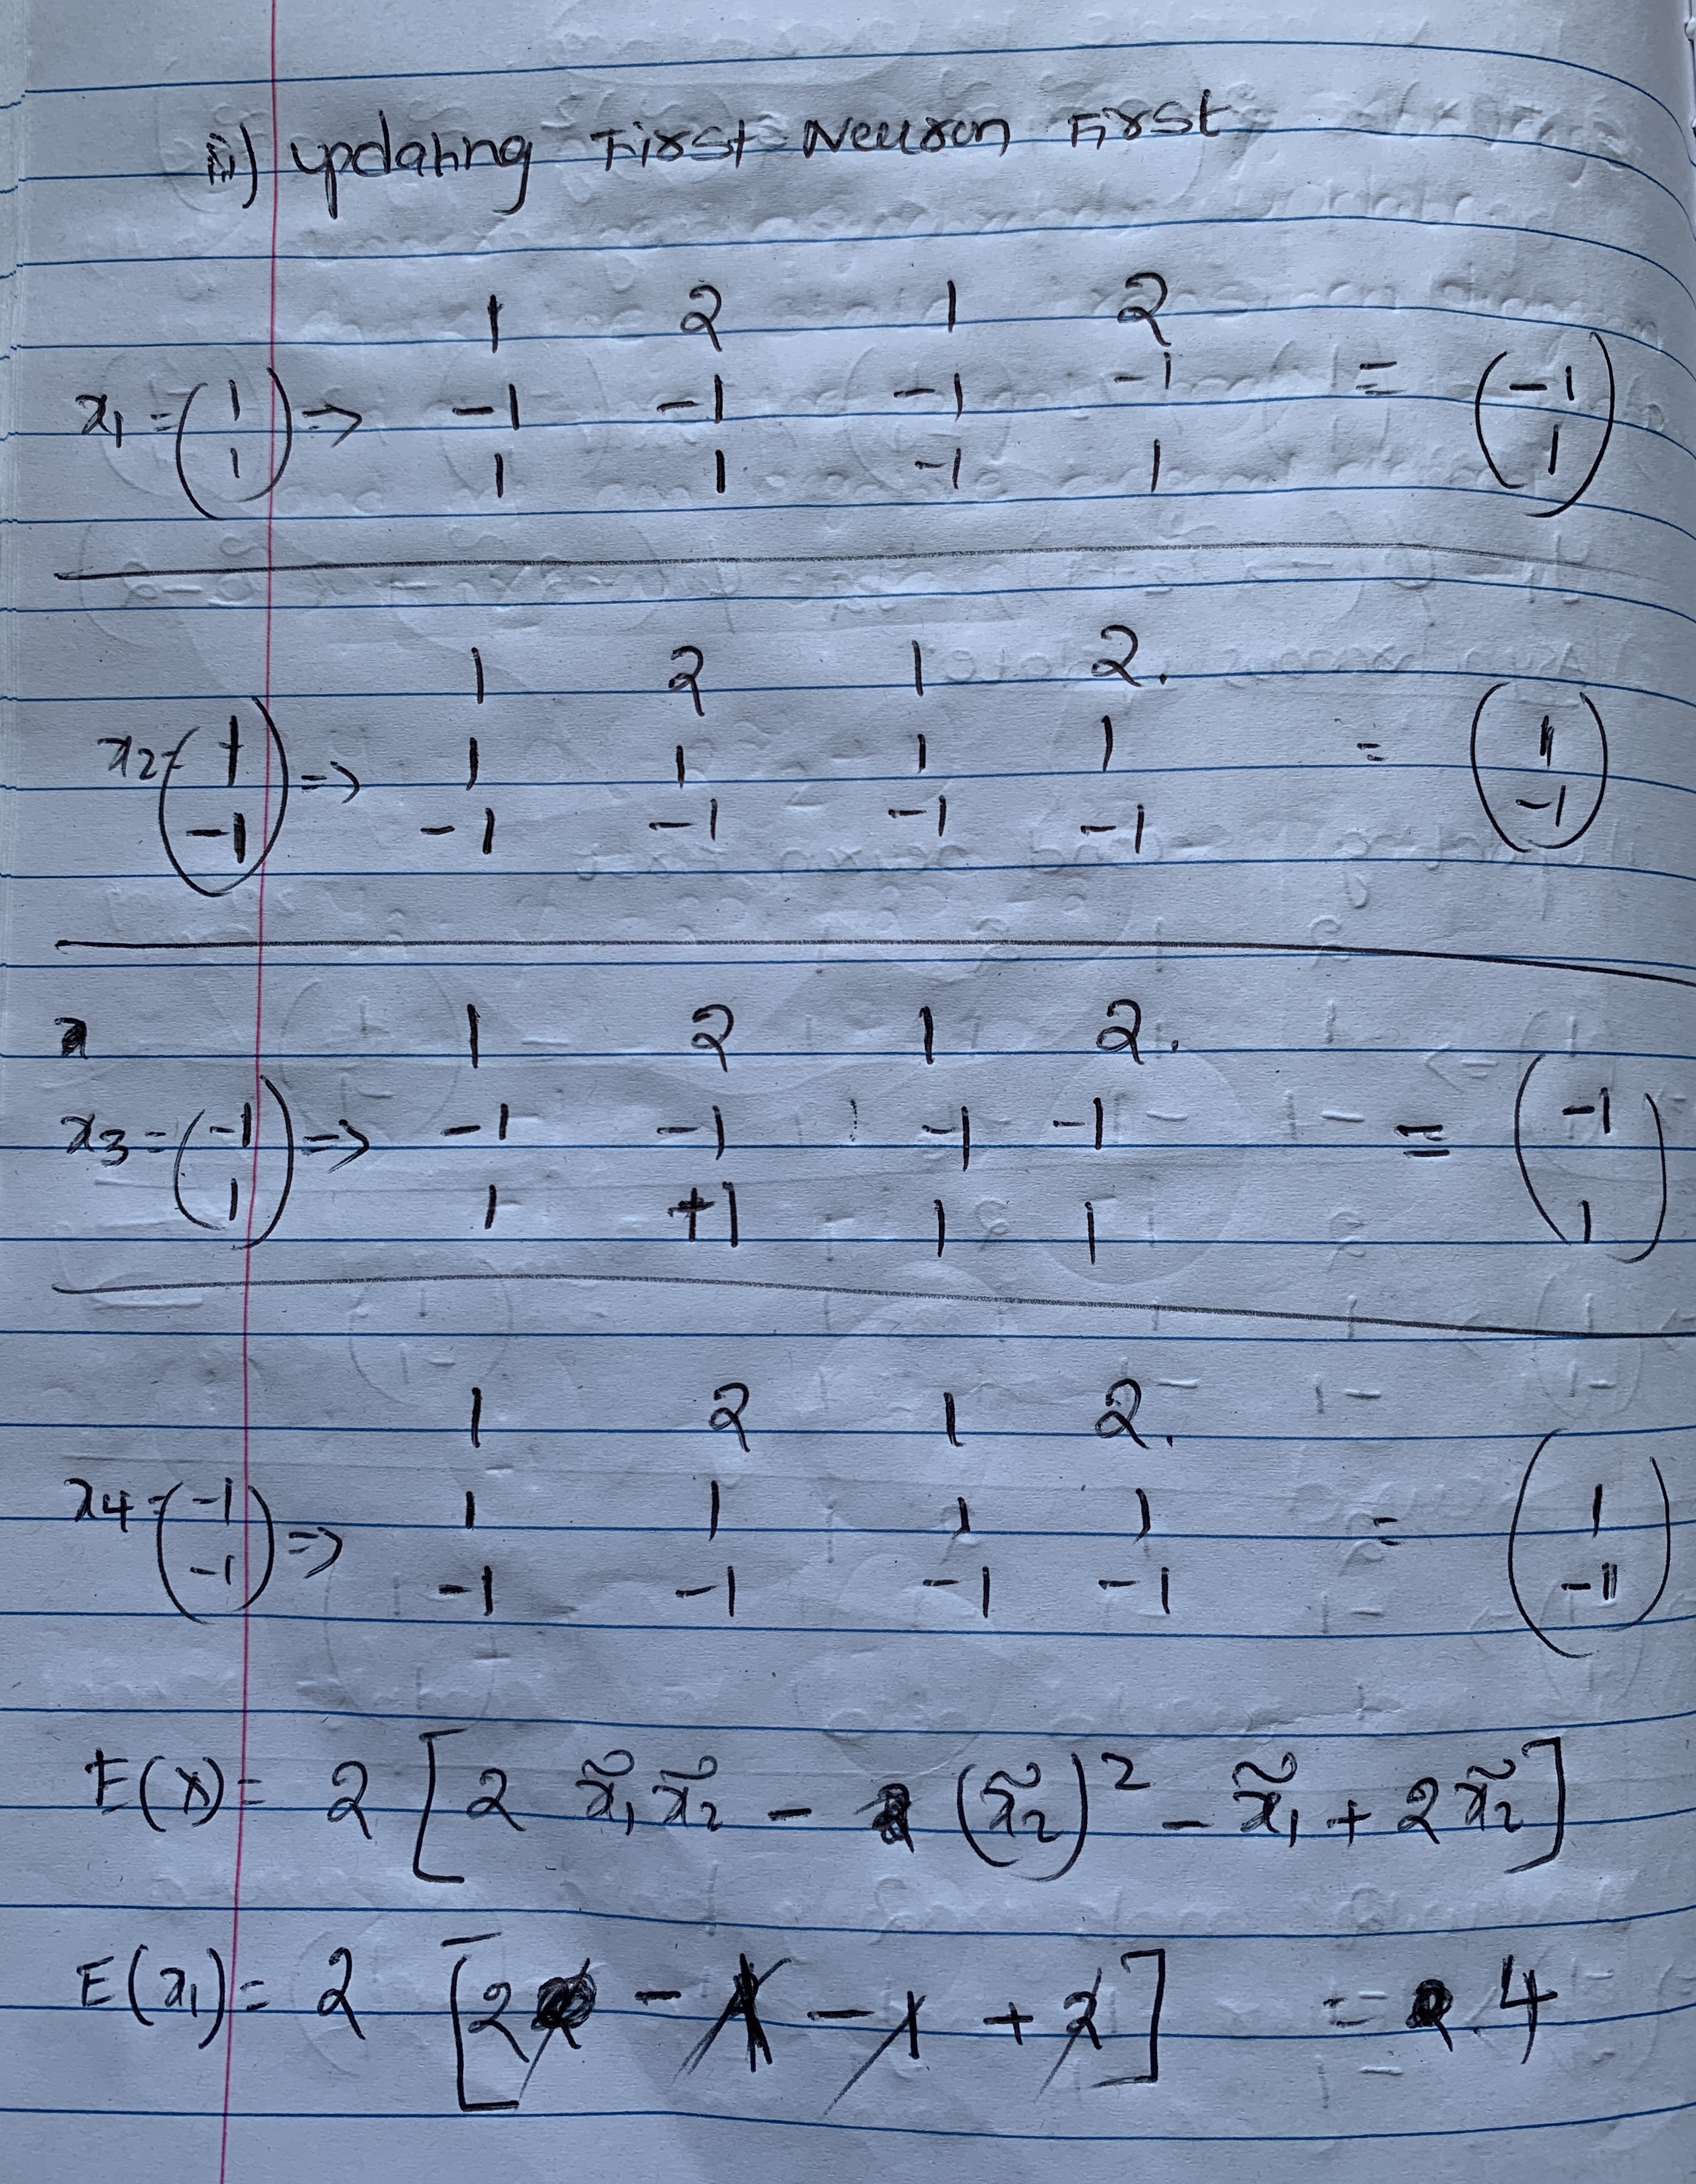 iii) updating First Neuron First
1 2 1 2
x₁ = (1 ⇒ -1 -1 -1 -1 = (-1
1) 1 1 -1 1 1)
1 2 1 2.
x2 = (1 ⇒ 1 1 1 1 = (1
-1) -1 -1 -1 -1 -1)
1 2 1 2.
x3 = (-1 ⇒ -1 -1 -1 -1 = (-1
1) 1 +1 1 1 1)
1 2 1 2.
x4 = (-1 ⇒ 1 1 1 1 = (1
-1) -1 -1 -1 -1 -1)
E(x) = 2 [2 x̃₁ x̃₂ - (x̃₂)² - x̃₁ + 2 x̃₂]
E(x₁) = 2 [2 - 1 - 1 + 2] = 4